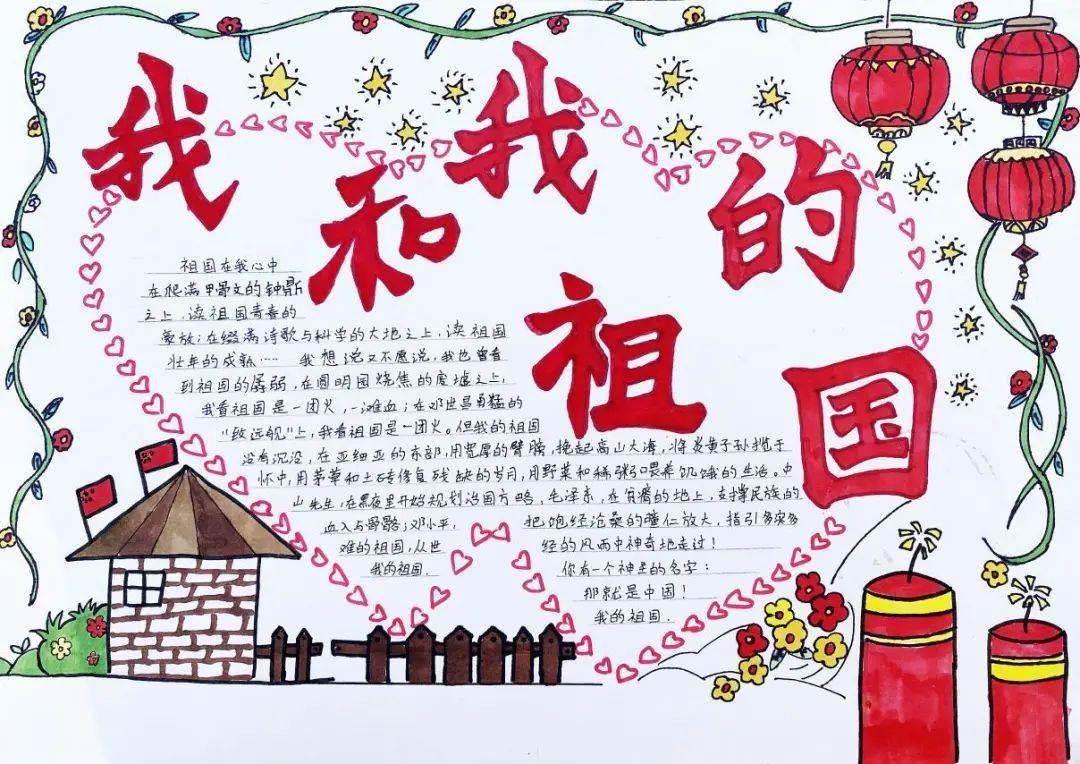 我和我的祖国
祖国在我心中
在爬满甲骨文的钟鼎
之上,读祖国青春的
豪放;在缀满诗歌与科学的大地之上,读祖国
壮年的成熟…… 我想说又不愿说,我也曾看
到祖国的孱弱,在圆明园烧焦的废墟之上,
我看祖国是一团火,一滩血;在邓世昌勇猛的
“致远舰”上,我看祖国是一团火。但我的祖国
没有沉没,在亚细亚的东部,用宽厚的臂膀,挽起高山大海,将炎黄子孙揽于
怀中,用茅草和土砖修复残缺的岁月,用野菜和稀粥喂养饥饿的生活。中
山先生,在黑夜里开始规划治国方略,毛泽东,在贫瘠的地上,支撑民族的
血入与骨骼;邓小平, 把饱经沧桑的瞳仁放大,指引多灾多
难的祖国,从世 经的风雨中神奇地走过!
我的祖国. 你有一个神圣的名字:
那就是中国!
我的祖国.